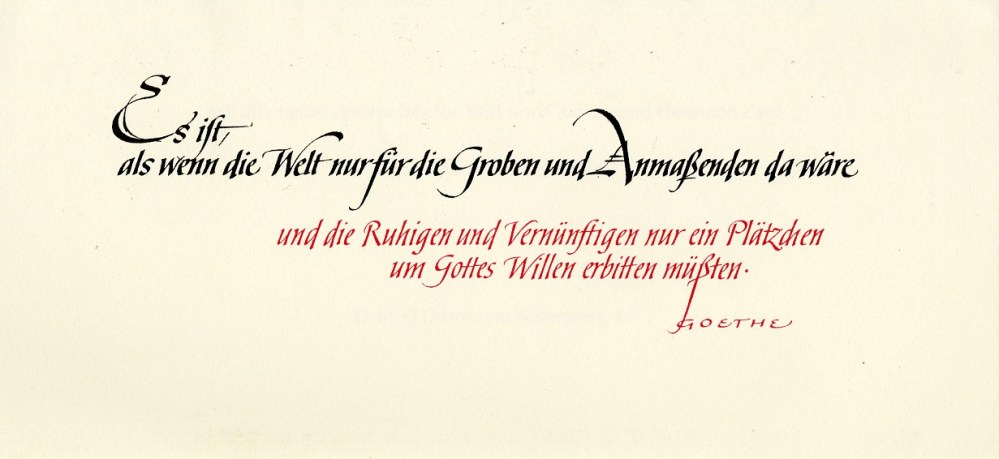 Es ist,
als wenn die Welt nur für die Groben und Anmaßenden da wäre
und die Ruhigen und Vernünftigen nur ein Plätzchen
um Gottes Willen erbitten müßten.
GOETHE